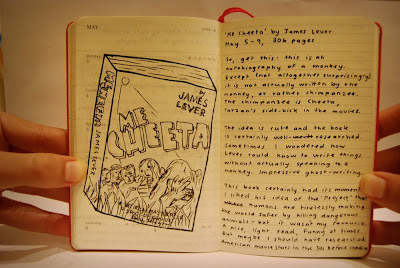 MAY
by
JAMES
LEVER
ME
CHEETA
JAMES LEVER
'Me Cheeta' by James Lever
May 5-9, 306 pages
So, get this: this is an
autobiography of a monkey.
Except (not altogether surprisingly)
it is not actually written by the
monkey, or rather chimpanzee.
The chimpanzee is Cheeta,
Tarzan's side-kick in the movies.
The idea is cute and the book
is certainly well researched.
Sometimes I wondered how
Lever could know to write things
without actually speaking to a
monkey. Impressive ghost-writing.
This book certainly had its moments.
I liked his idea of the "project" that
humans are tirelessly making
the world safer by killing dangerous
animals - but it wasn't my favourite.
A nice, light read, funny at times
But maybe I should have researched
American moviestars in the 30s before